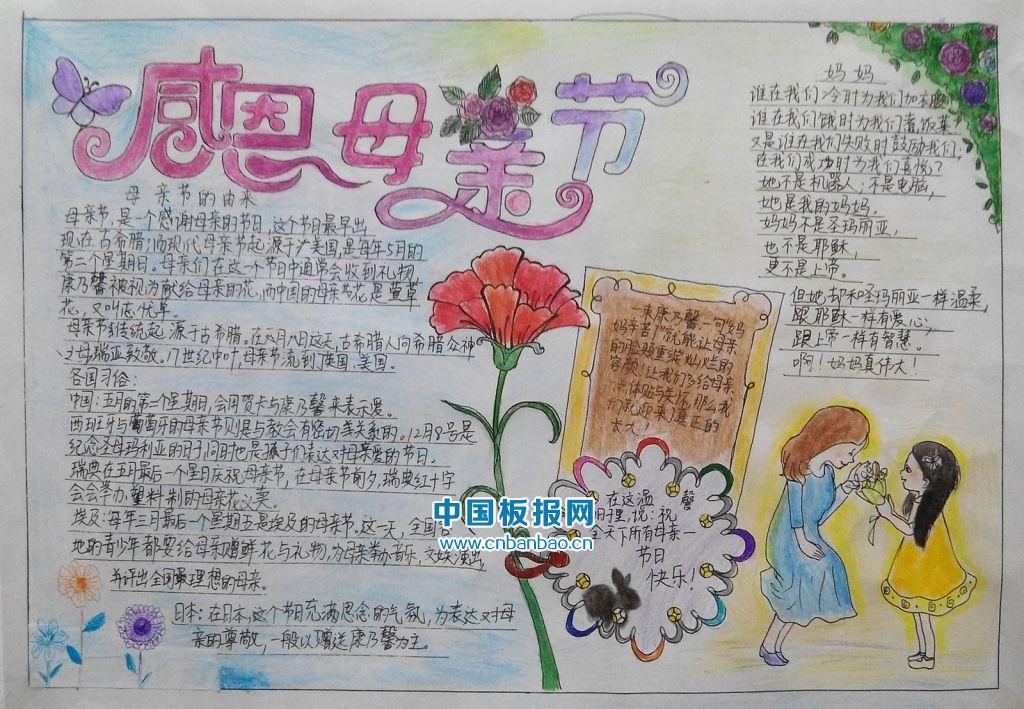 感恩母亲节
母亲节的由来
母亲节,是一个感谢母亲的节日,这个节日最早出
现在古希腊;而现代母亲节起源于美国,是每年5月的
第二个星期日。母亲们在这一个节日中通常会收到礼物,
康乃馨被视为献给母亲的花,而中国的母亲节花是萱草
花,又叫忘忧草。
母亲节传统起源于古希腊。在八月八日这天,古希腊人向希腊众神
之母瑞亚致敬。17世纪中叶,母亲节流到英国、美国。
各国习俗:
中国:五月的第二个星期日,会用贺卡与康乃馨来表示爱。
西班牙与葡萄牙的母亲节则是与教会有密切关系的。12月8号是
纪念圣母玛利亚的日子同时也是孩子们表达对母亲爱的节日。
瑞典在五月最后一个星日庆祝母亲节,在母亲节前夕,瑞典红十字
会会举办塑料制的母亲花义卖。
埃及:每年三月最后一个星期五是埃及的母亲节。这一天,全国各
地的青少年都要给母亲赠鲜花与礼物,为母亲举办音乐、文娱演出,
并评出全国最理想的母亲。
日本:在日本,这个节日充满思念的气氛,为表达对母
亲的尊敬,一般以赠送康乃馨为主。
妈妈
谁在我们冷时为我们加衣服
谁在我们饿时为我们煮饭菜?
又是谁在我们失败时鼓励我们,
在我们成功时为我们喜悦?
她不是机器人,不是电脑,
她是我的妈妈。
妈妈不是圣玛丽亚,
也不是耶稣,
更不是上帝。
但她却和圣玛丽亚一样温柔,
跟耶稣一样有爱心,
跟上帝一样有智慧。
啊!妈妈真伟大!
一束康乃馨,一句"妈
妈辛苦了"就能让母亲
的脸颊重绽灿烂的
容颜!让我们多给母亲
一点体贴与关怀,那么我
们就迎来了真正的
太太!
在这温馨
的日子里,说:祝
全天下所有母亲一
节日
快乐!
中国板报网
www.cnbanbao.cn